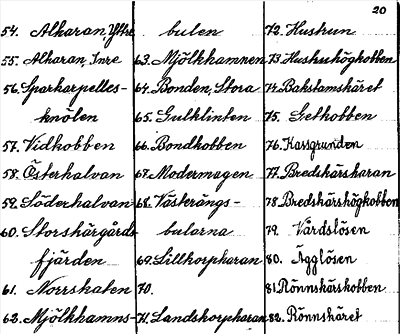 20
54. Alkaran, Yttre
55. Alkaran, Inre
56. Sparkarpelles-
knölen
57. Vidkobben
58. Österhalvan
59. Söderhalvan
60. Storskärgårds-
fjärden
61. Norrskaten
62. Mjölkhamns-
bulen
63. Mjölkhamnen
64. Bonden, Stora
65. Gulklinten
66. Bondkobben
67. Modermagen
68. Västerängs-
bularna
69. Lillkorpharan
70.
71. Landskorpharan
72. Hustrun
73. Hustruhögkobben
74. Bakstamskäret
75. Getkobben
76. Kassgrunden
77. Bredskärsharan
78. Bredskärshögkobben
79. Vårdslösen
80. Ägglösen
81. Rönnskärskobben
82. Rönnskäret